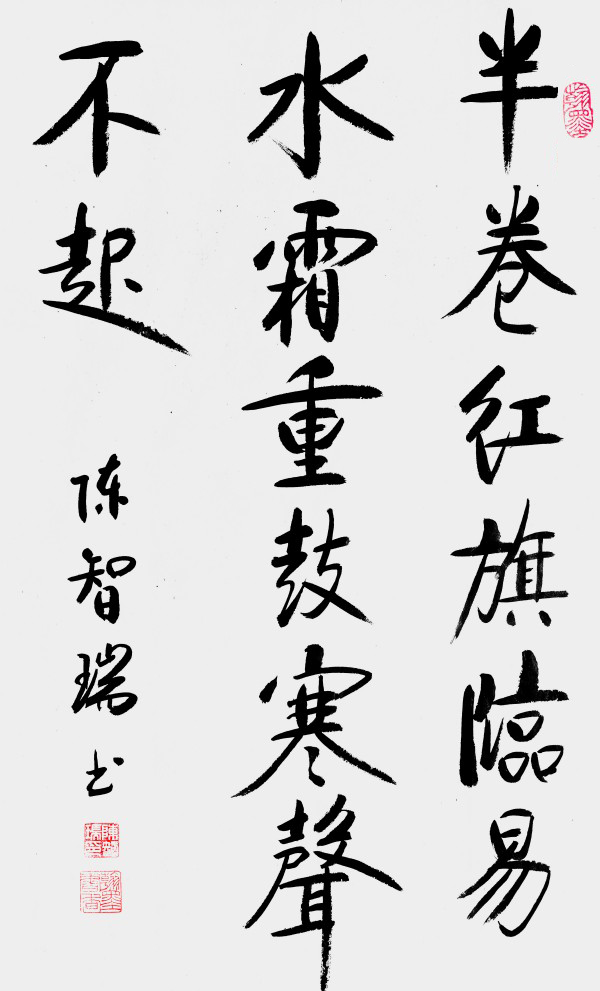 半卷红旗臨易
水霜重鼓寒聲
不起
陈智瑞书